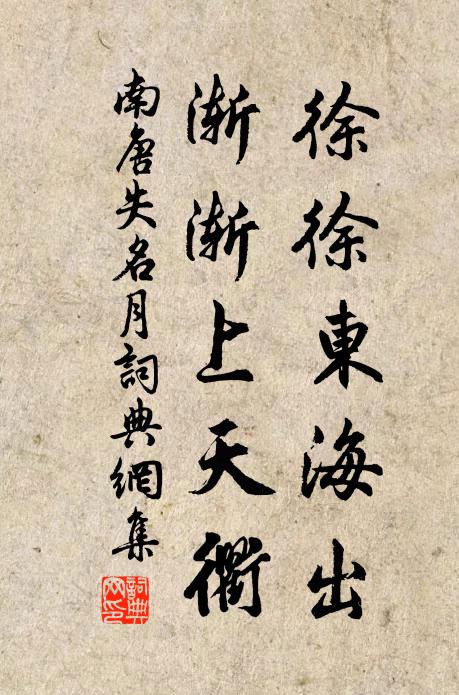 徐徐東海出
漸漸上天衢
南唐失名月詞典網集
詞典網印